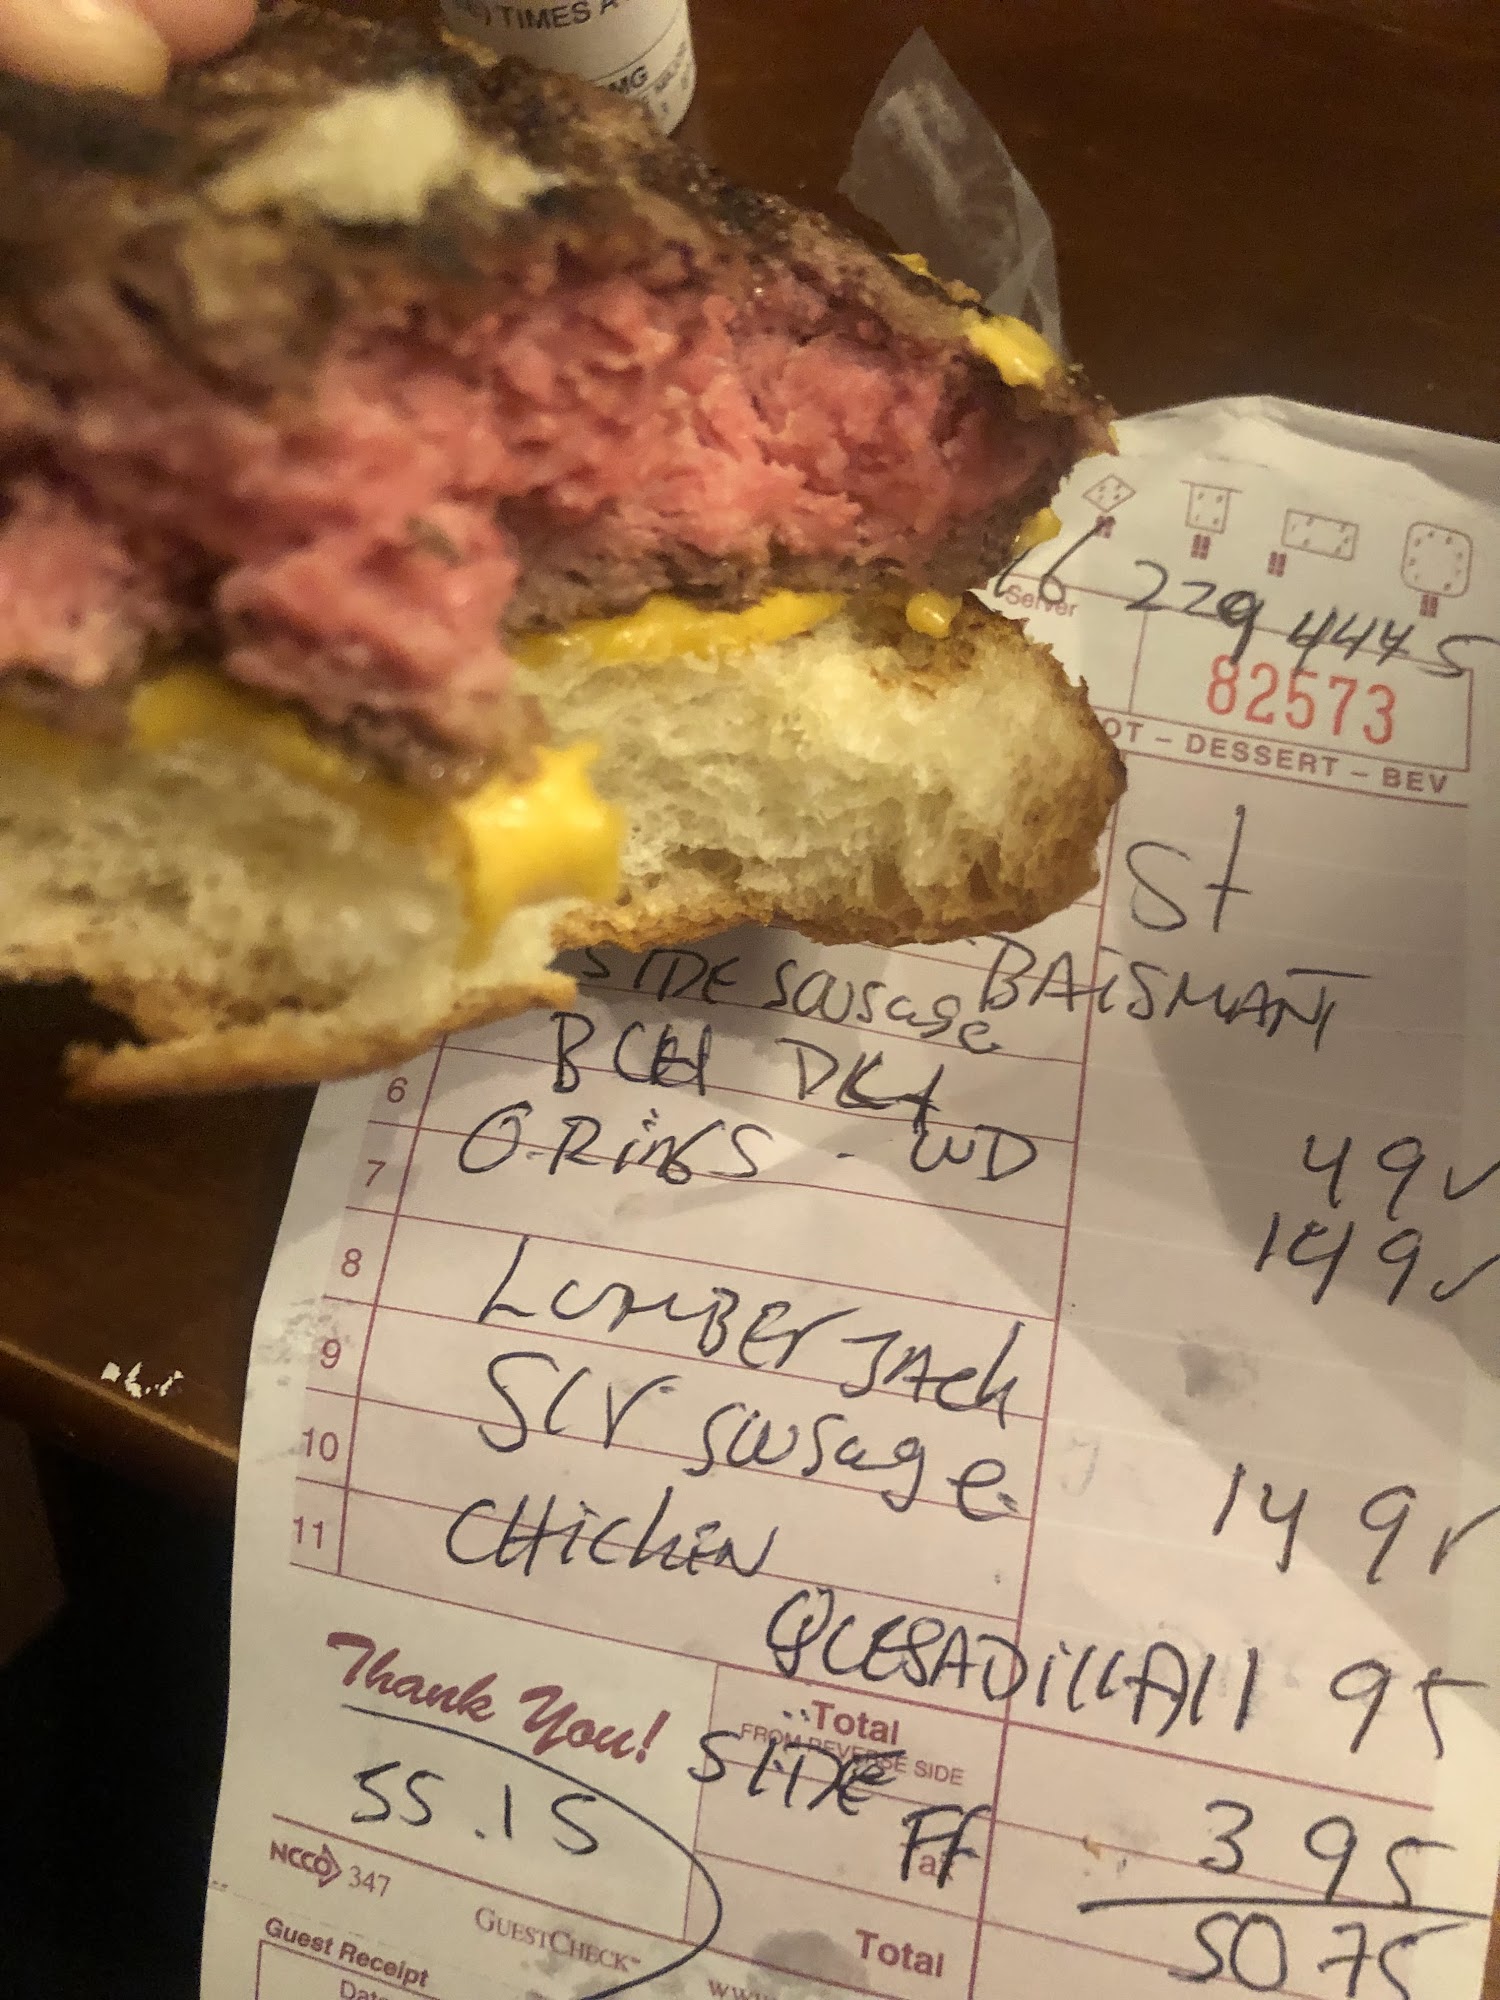 TIMES A
MG
16 229 4445
Server
82573
OT – DESSERT – BEV
St
BAiSMANT
SIDE SAUSage
6 BCH DLX
7 O.RiNGS - WD 49 ✓
149 ✓
8 LUMBErJACk
9 SLV SAUSage 149 ✓
10 CHiCkEN
11 QUESADiLLA 11 95
Thank You!
Total
FROM REVERSE SIDE
SIDE FF 3 95
55.15
NCCO 347
GUESTCHECK™
Total 50 75
Guest Receipt
Date
WWW